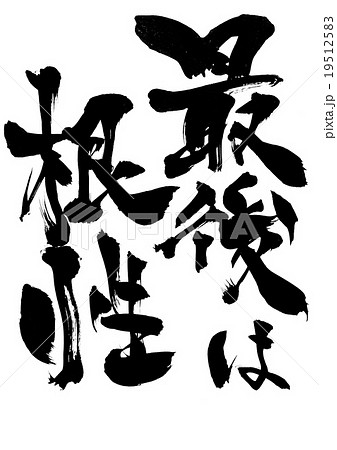 最後は
根性
PIXTA
pixta.jp - 19512583